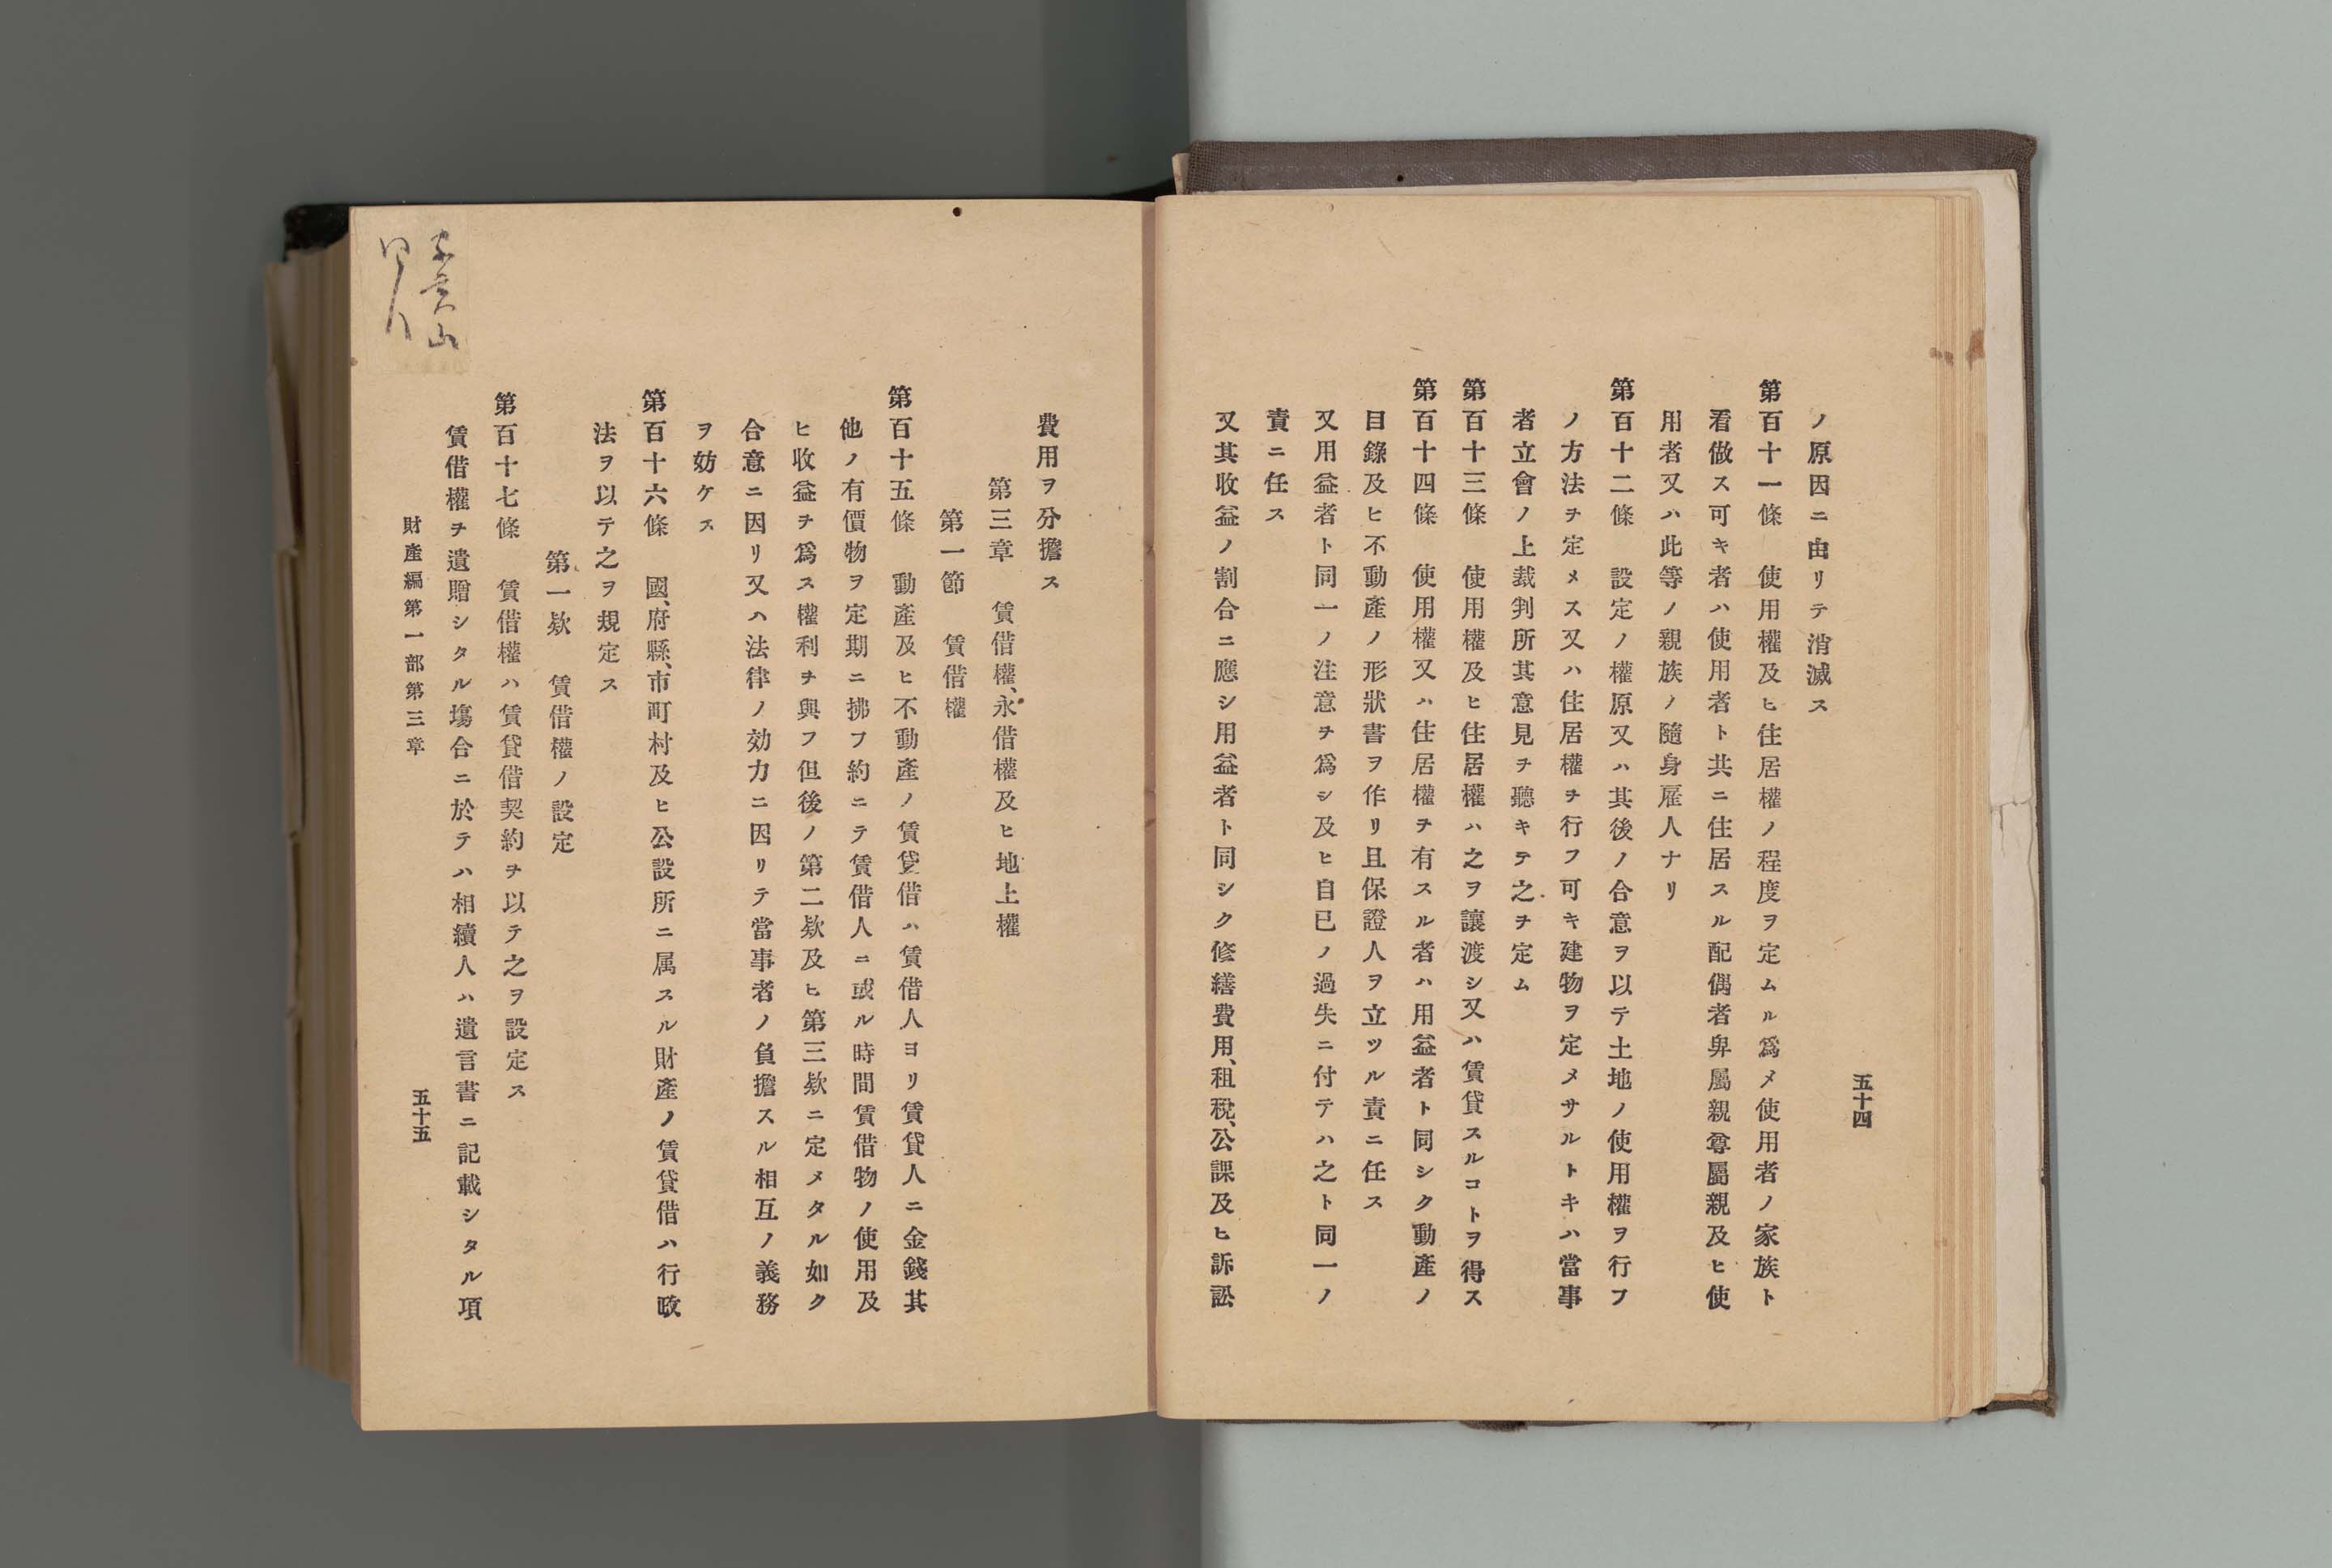 五十四
ノ原因ニ由リテ消滅ス
第百十一條　使用權及ヒ住居權ノ程度ヲ定ムル爲メ使用者ノ家族ト
看做ス可キ者ハ使用者ト共ニ住居スル配偶者卑屬親尊屬親及ヒ使
用者又ハ此等ノ親族ノ隨身雇人ナリ
第百十二條　設定ノ權原又ハ其後ノ合意ヲ以テ土地ノ使用權ヲ行フ
ノ方法ヲ定メス又ハ住居權ヲ行フ可キ建物ヲ定メサルトキハ當事
者立會ノ上裁判所其意見ヲ聽キテ之ヲ定ム
第百十三條　使用權及ヒ住居權ハ之ヲ讓渡シ又ハ賃貸スルコトヲ得ス
第百十四條　使用權又ハ住居權ヲ有スル者ハ用益者ト同シク動產ノ
目錄及ヒ不動產ノ形狀書ヲ作リ且保證人ヲ立ツル責ニ任ス
又用益者ト同一ノ注意ヲ爲シ及ヒ自已ノ過失ニ付テハ之ト同一ノ
責ニ任ス
又其收益ノ割合ニ應シ用益者ト同シク修繕費用、租稅、公課及ヒ訴訟
費用ヲ分擔ス
第三章　賃借權、永借權及ヒ地上權
第一節　賃借權
第百十五條　動產及ヒ不動產ノ賃貸借ハ賃借人ヨリ賃貸人ニ金錢其
他ノ有價物ヲ定期ニ拂フ約ニテ賃借人ニ或ル時間賃借物ノ使用及
ヒ收益ヲ爲ス權利ヲ與フ但後ノ第二欵及ヒ第三欵ニ定メタル如ク
合意ニ因リ又ハ法律ノ効力ニ因リテ當事者ノ負擔スル相互ノ義務
ヲ妨ケス
第百十六條　國、府縣、市町村及ヒ公設所ニ属スル財產ノ賃貸借ハ行政
法ヲ以テ之ヲ規定ス
第一欵　賃借權ノ設定
第百十七條　賃借權ハ賃貸借契約ヲ以テ之ヲ設定ス
賃借權ヲ遺贈シタル塲合ニ於テハ相續人ハ遺言書ニ記載シタル項
財產編第一部第三章
五十五